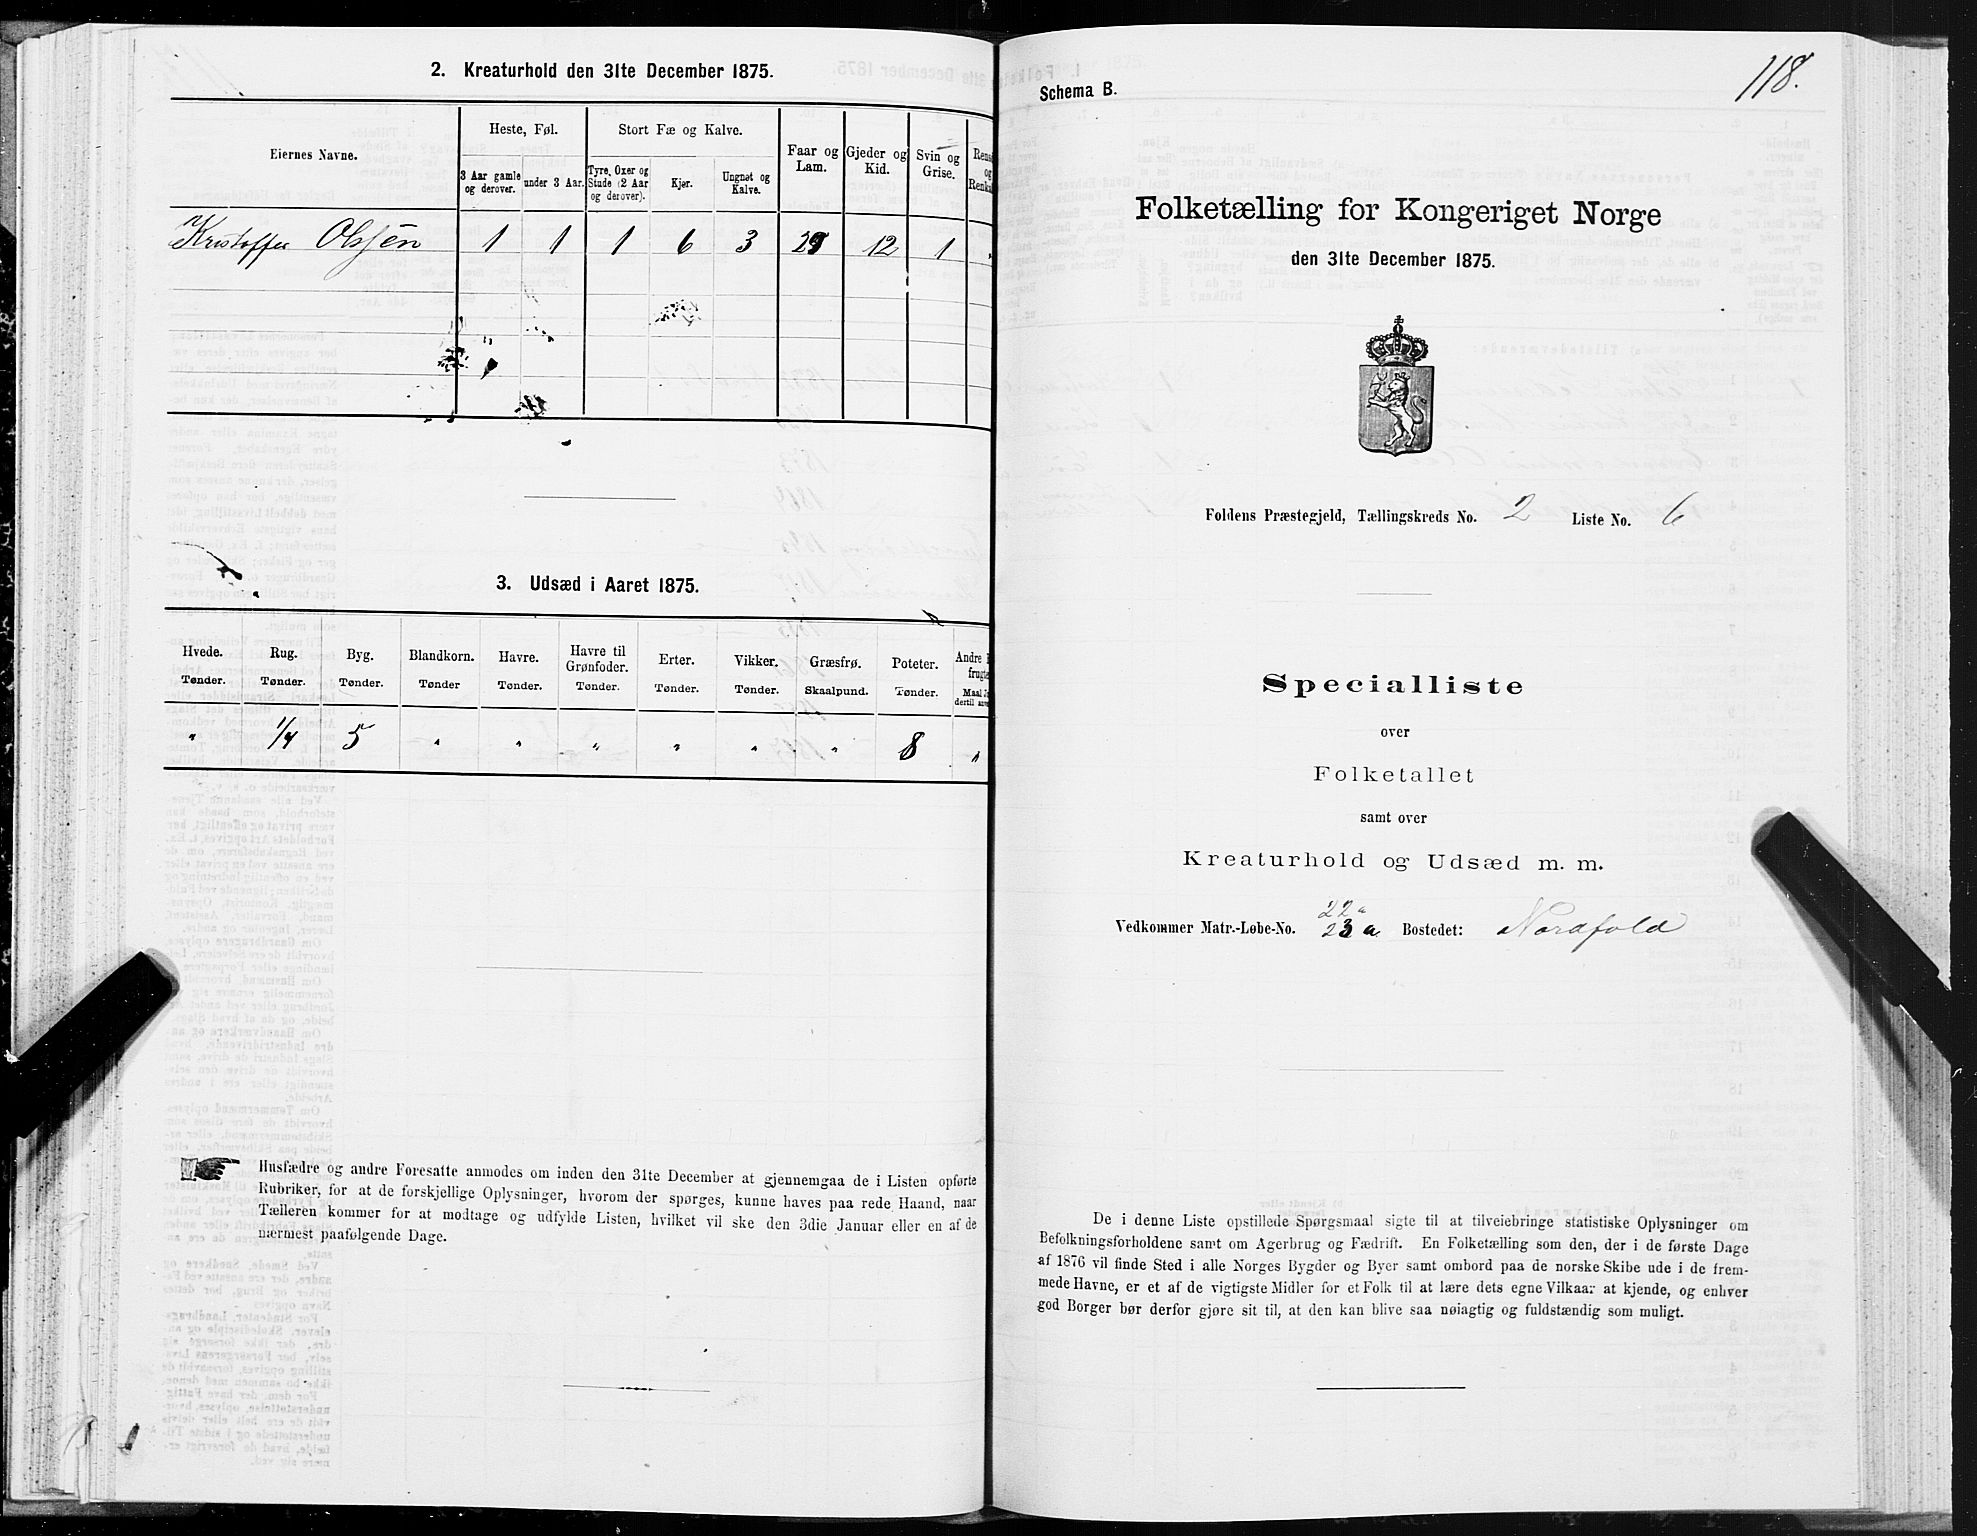 2. Kreaturhold den 31te December 1875.
Eiernes Navne.
Heste, Føl.
Stort Fæ og Kalve.
Faar og Lam.
Gjeder og Kid.
Svin og Grise.
og
3 Aar gamle og derover.
under 3 Aar.
Tyre, Oxer og Stude (2 Aar og derover).
Kjør.
Ungnøt og Kalve.
Kristoffer Olssen 1 1 1 6 3 12 1 "
3. Udsæd i Aaret 1875.
Hvede. Rug. Byg. Blandkorn. Havre. Havre til Grønfoder. Erter. Vikker. Græsfrø. Poteter. Andre
Tønder. Tønder. Tønder. Tønder Tønder. Tønder. Tønder. Tønder. Skaalpund. Tønder. Maal
" 1/4 5 " " " " " " 8 "
Husfædre og andre Foresatte anmodes om inden den 31te December at gjennemgaa de i Listen opførte
Rubriker, for at de forskjellige Oplysninger, hvorom der spørges, kunne haves paa rede Haand, naar
Tælleren kommer for at modtage og udfylde Listen, hvilket vil ske den 3die Januar eller en af de
nærmest paafølgende Dage.
118.
Schema B.
Folketælling for Kongeriget Norge
den 31te December 1875.
Foldens Præstegjeld, Tællingskreds No. 2 Liste No. 6
Specialliste
over
Folketallet
samt over
Kreaturhold og Udsæd m. m.
22a
Vedkommer Matr.-Løbe-No. 23a Bostedet: Nordfold
De i denne Liste opstillede Spørgsmaal sigte til at tilveiebringe statistiske Oplysninger om
Befolkningsforholdene samt om Agerbrug og Fædrift. En Folketælling som den, der i de første Dage
af 1876 vil finde Sted i alle Norges Bygder og Byer samt ombord paa de norske Skibe ude i de frem-
mede Havne, er et af de vigtigste Midler for et Folk til at lære dets egne Vilkaar at kjende, og enhver
god Borger bør derfor gjøre sit til, at den kan blive saa nøiagtig og fuldstændig som muligt.